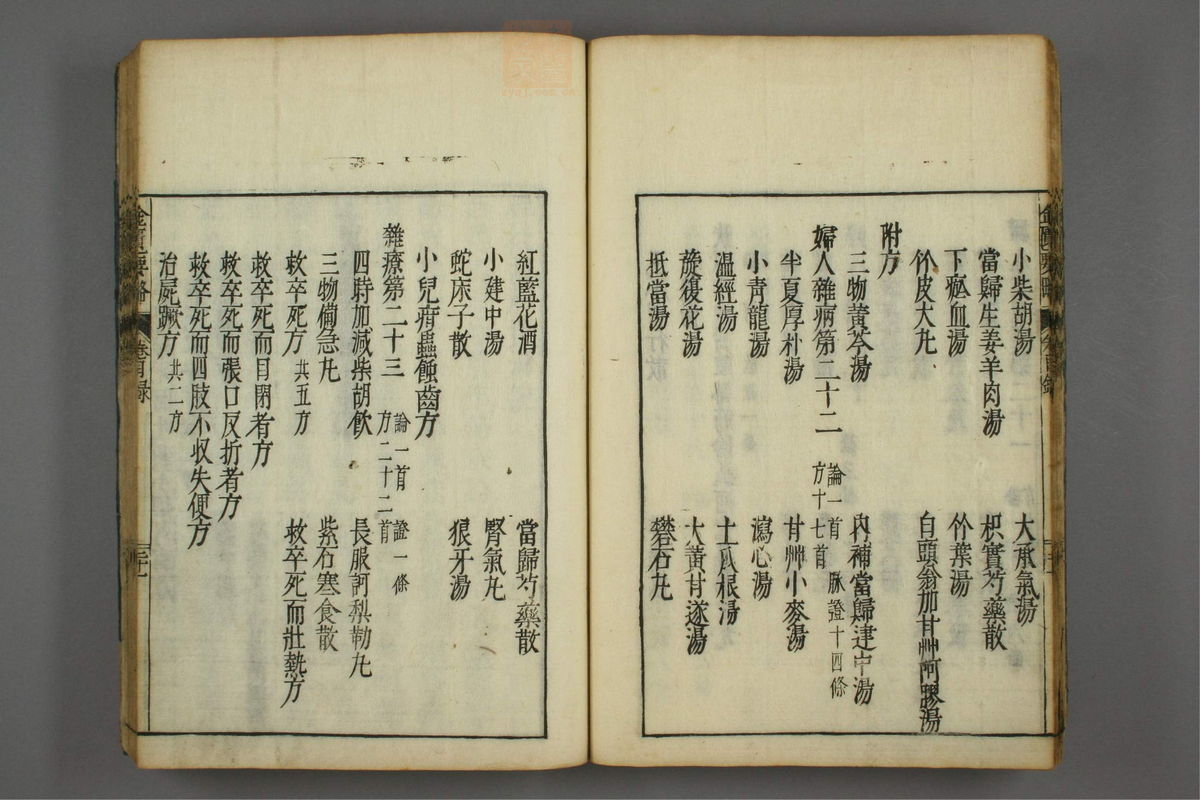 小柴胡湯　大承氣湯
當歸生姜羊肉湯　枳實芍藥散
下瘀血湯　竹葉湯
竹皮大丸　白頭翁加甘艸阿膠湯
附方
三物黄芩湯　内補當歸建中湯
婦人雜病第二十二　論一首　脉證十四條
方十七首
半夏厚朴湯　甘艸小麥湯
小青龍湯　瀉心湯
温經湯　土瓜根湯
旋復花湯　大黄甘遂湯
抵當湯　礬石丸
紅藍花酒　當歸芍藥散
小建中湯　腎氣丸
蛇床子散　狼牙湯
小兒疳蟲蝕齒方
雜療第二十三　論一首　證一條
方二十二首
四時加减柴胡飲　長服訶梨勒丸
三物備急丸　紫石寒食散
救卒死方　共五方　救卒死而壯熱方
救卒死而目閉者方
救卒死而張口反折者方
救卒死而四肢不収失便方
治屍蹶方　共二方
金匱要略　卷目録